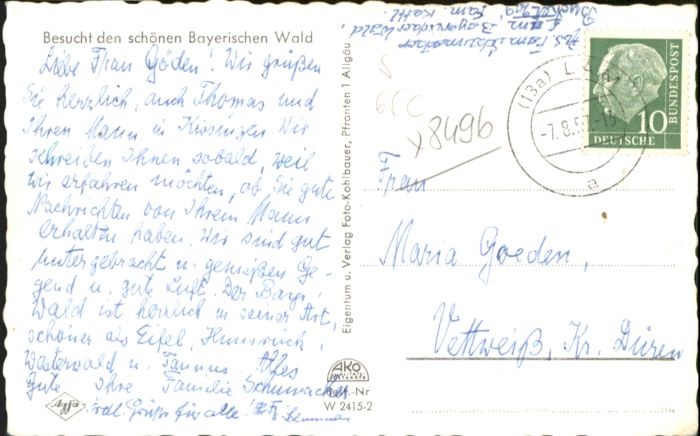 Besucht den schönen Bayerischen Wald
Liebe Frau Göden! Wir grüßen
Sie herzlich, auch Thomas und
Ihren Mann in Kissingen. Wir
schreiben Ihnen sobald, weil
wir erfahren möchten, ob Sie gute
Nachrichten von Ihrem Mann
erhalten haben. Wir sind gut
untergebracht u. genießen Ge-
gend u. gute Luft. Der Bayr.
Wald ist herrlich in seiner Art,
schöner als Eifel, Hunsrück,
Westerwald u. Taunus. Alles
Gute Ihre Familie Schumacher
Grüße für alle!
Agfa
Eigentum u. Verlag Foto-Kohlbauer, Pfronten 1 Allgäu
AKO
Nr
W 2415-2
Abs. Fam. Schumacher
Bayerischer Wald,
Fam.
x 8496
(13a) L
-7.8.5
a
BUNDESPOST
10
DEUTSCHE
Frau
Maria Goeden,
Vettweiß, Kr. Düren